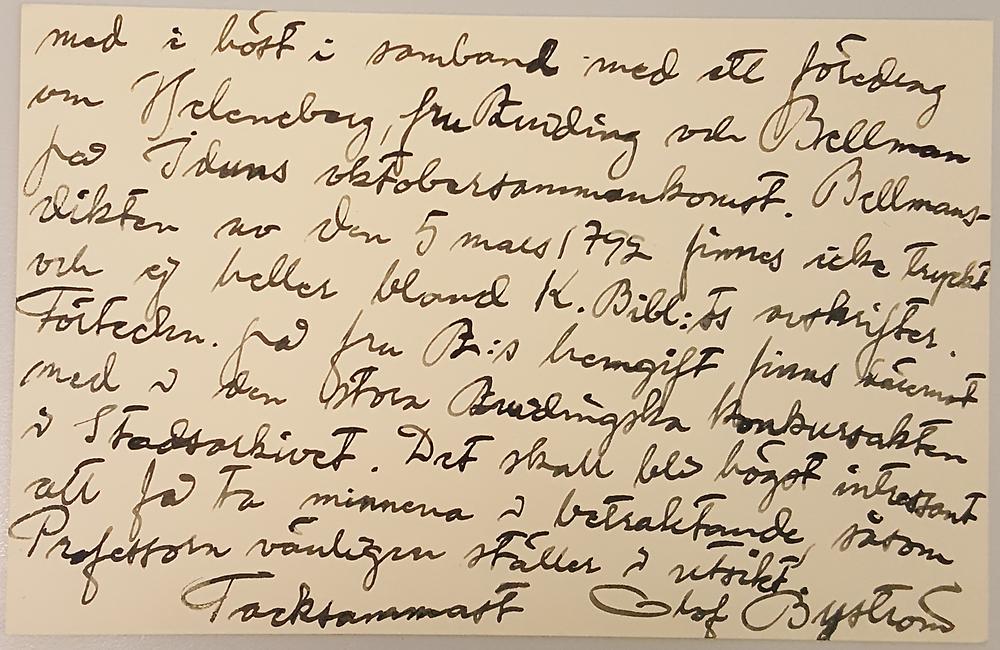 med i höst i samband med ett föredrag
om Heleneberg, fru Bruding och Bellman
på Iduns oktobersammankomst. Bellmans-
dikten av den 5 mars 1792 finnes icke tryckt
och ej heller bland K. Bibl:ts avskrifter.
Förteckn. på fru B:s hemgift finns
med i den stora Brudingska konkursakten
i Stadsarkivet. Det skall bli högst intressant
att få ta minnena i betraktande, såsom
Professorn vänligen ställer i utsikt.
Tacksammast Olof Byström